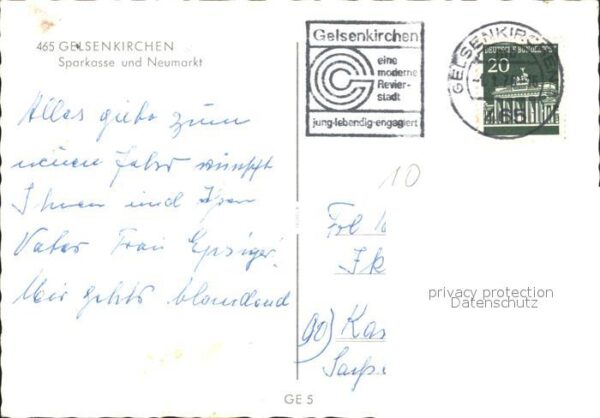 465 GELSENKIRCHEN
Sparkasse und Neumarkt
Gelsenkirchen
eine
moderne
Revier-
stadt
jung-lebendig-engagiert
GELSENKIRCHEN
465
DEUTSCHE BUNDESPOST
20
10
Alles gute zum
neuen Jahr wünscht
Ihnen und Ihren
Vater Frau
Mir gehts
Frl
Ka
privacy protection
Datenschutz
GE 5